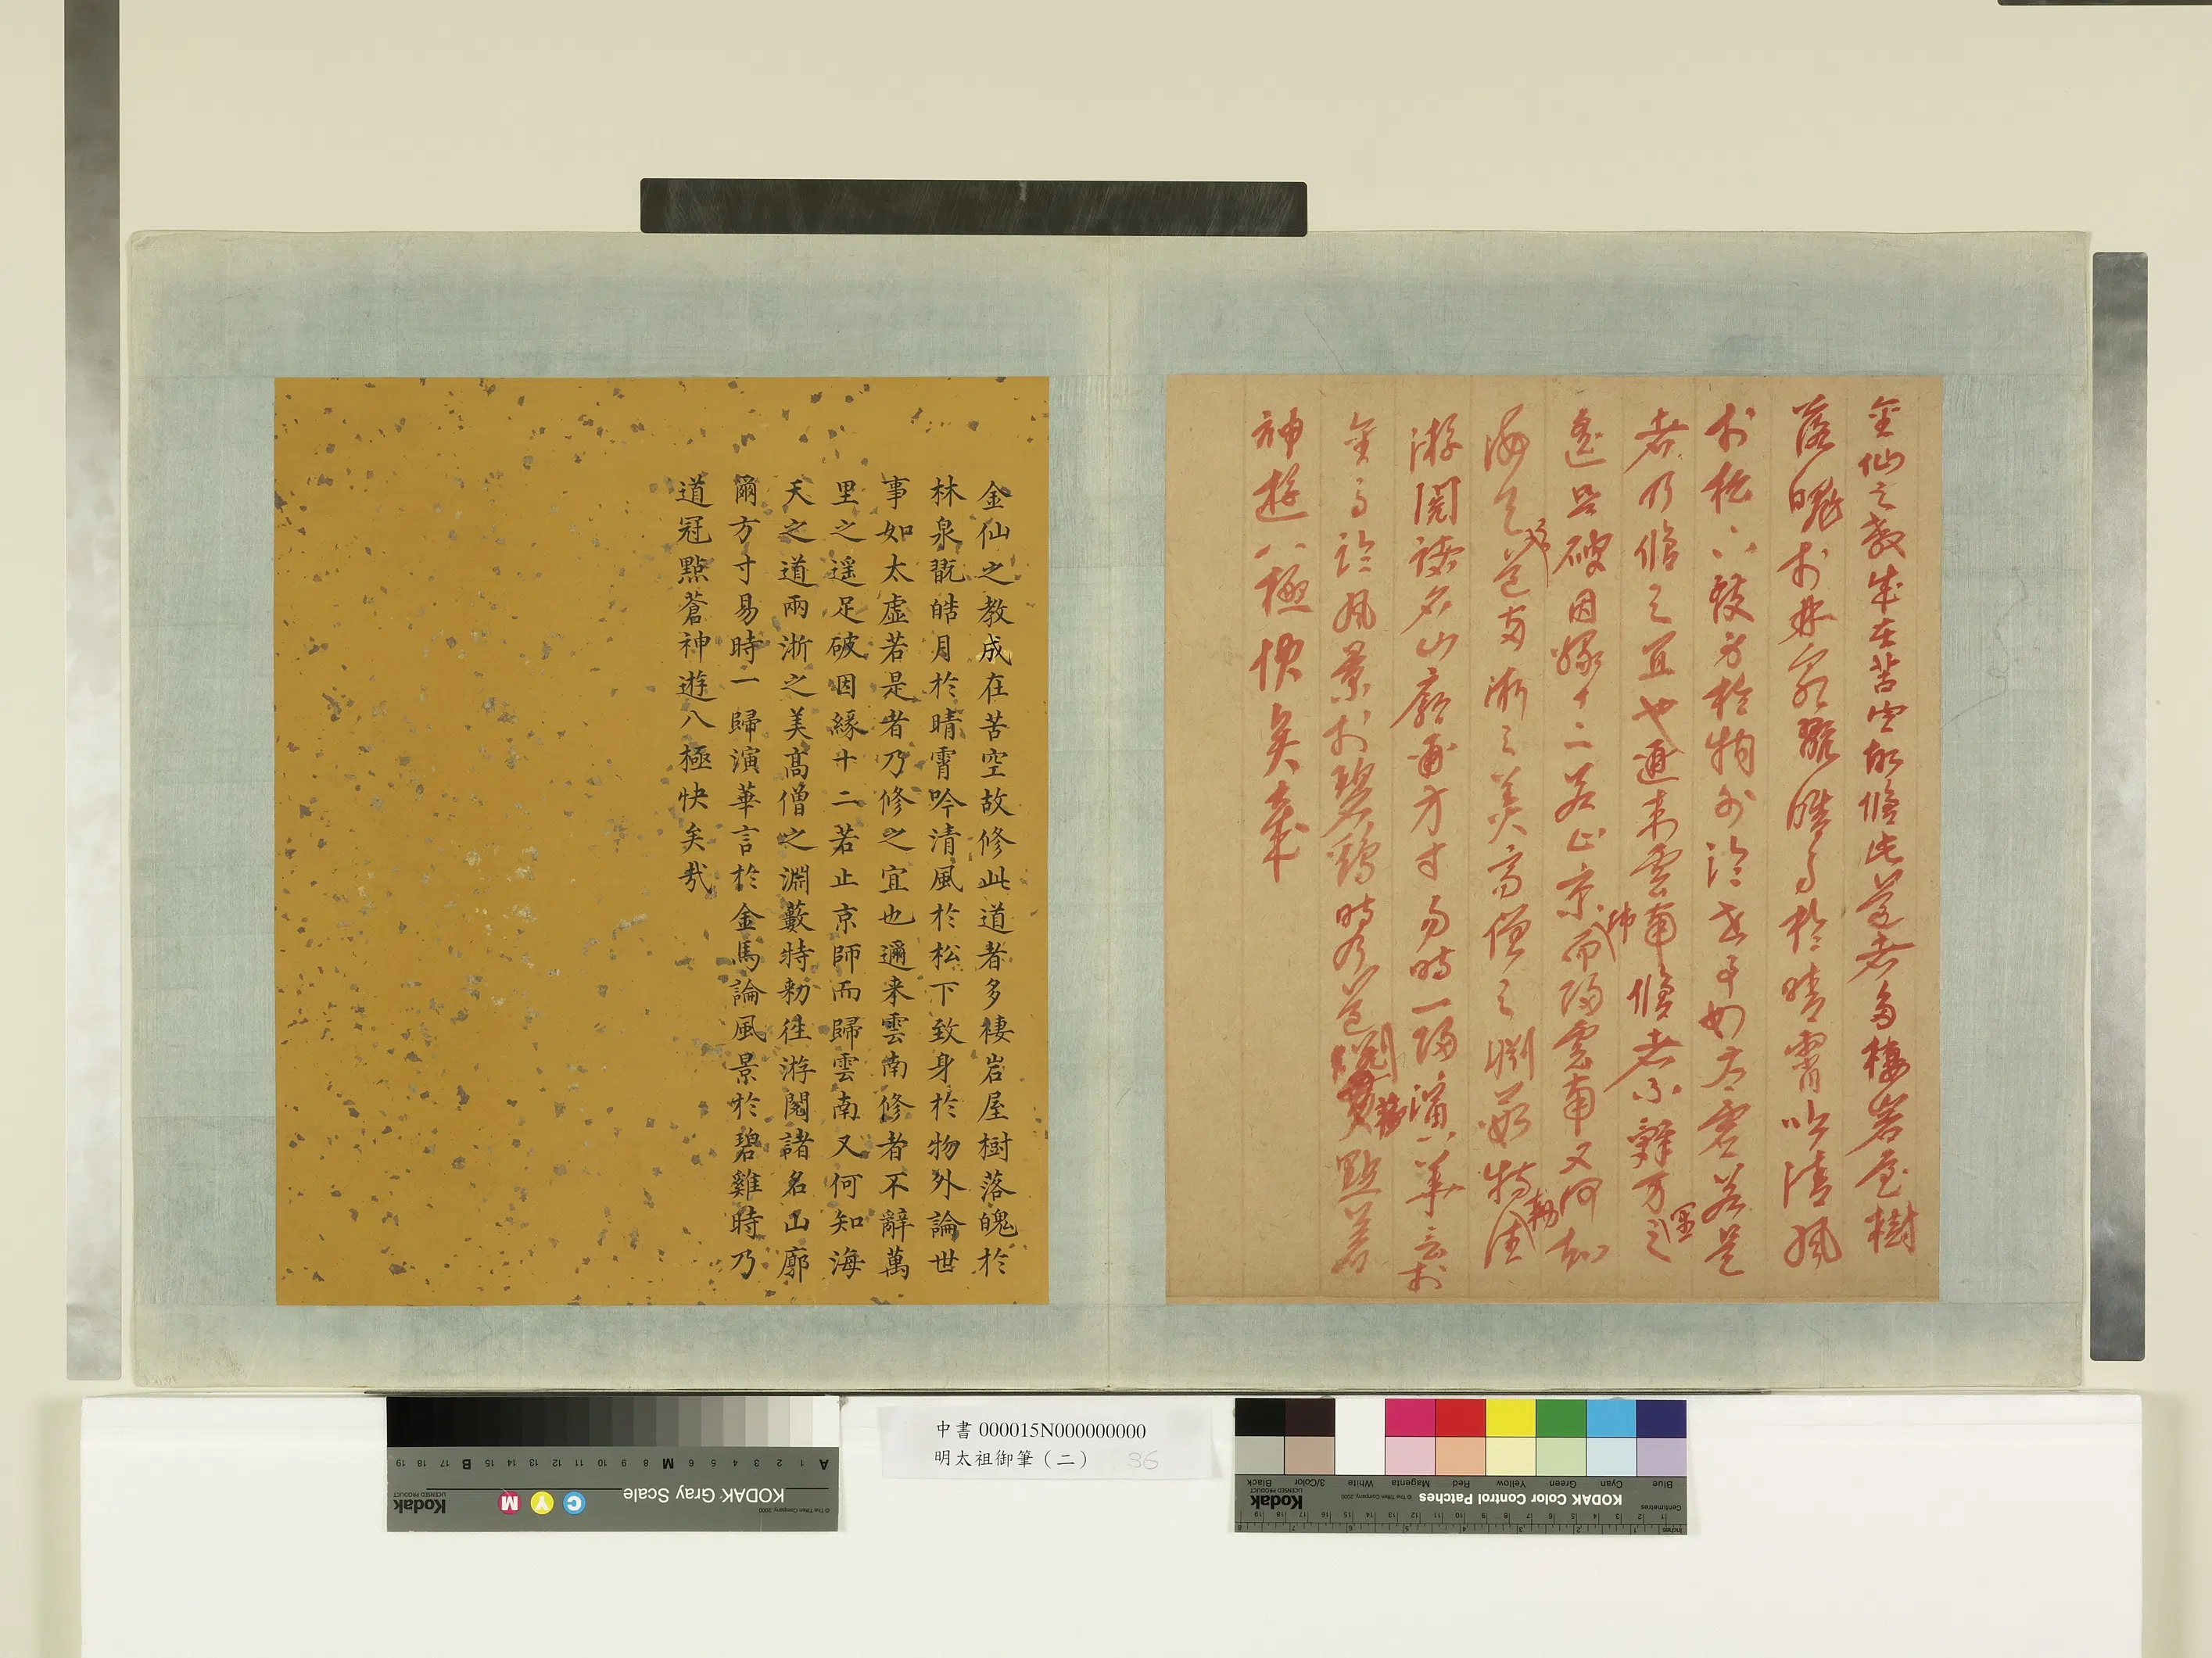 金仙之教成在苦空故修此道者多棲岩屋樹
落魄於林泉翫皓月於晴霄吟清風
於松下致身於物外論世事如太虛若是
者乃修之宜也邇来雲南修者不辭万里之
遥足破因緣十二若止京師而歸雲南又何知
海天之道兩淅之美高僧之淵藪特勅往
游閱諸名山廓爾方寸易時一歸演華言於
金馬論風景於碧鷄時乃道冠點蒼
神遊八極快矣哉
金仙之教成在苦空故修此道者多棲岩屋樹落魄於
林泉翫皓月於晴霄吟清風於松下致身於物外論世
事如太虛若是者乃修之宜也邇来雲南修者不辭萬
里之遥足破因緣十二若止京師而歸雲南又何知海
天之道兩淅之美髙僧之淵藪特勑徃游閱諸名山廓
爾方寸易時一歸演華言於金馬論風景於碧雞時乃
道冠點蒼神遊八極快矣哉
中書 000015N000000000
明太祖御筆（二） 36
KODAK Gray Scale
Kodak
LICENSED PRODUCT
© The Tiffen Company, 2000
C Y M
A 1 2 3 4 5 6 M 8 9 10 11 12 13 14 15 B 17 18 19
KODAK Color Control Patches
Kodak
LICENSED PRODUCT
© The Tiffen Company, 2000
Blue Cyan Green Yellow Red Magenta White 3/Color Black
Centimetres
Inches